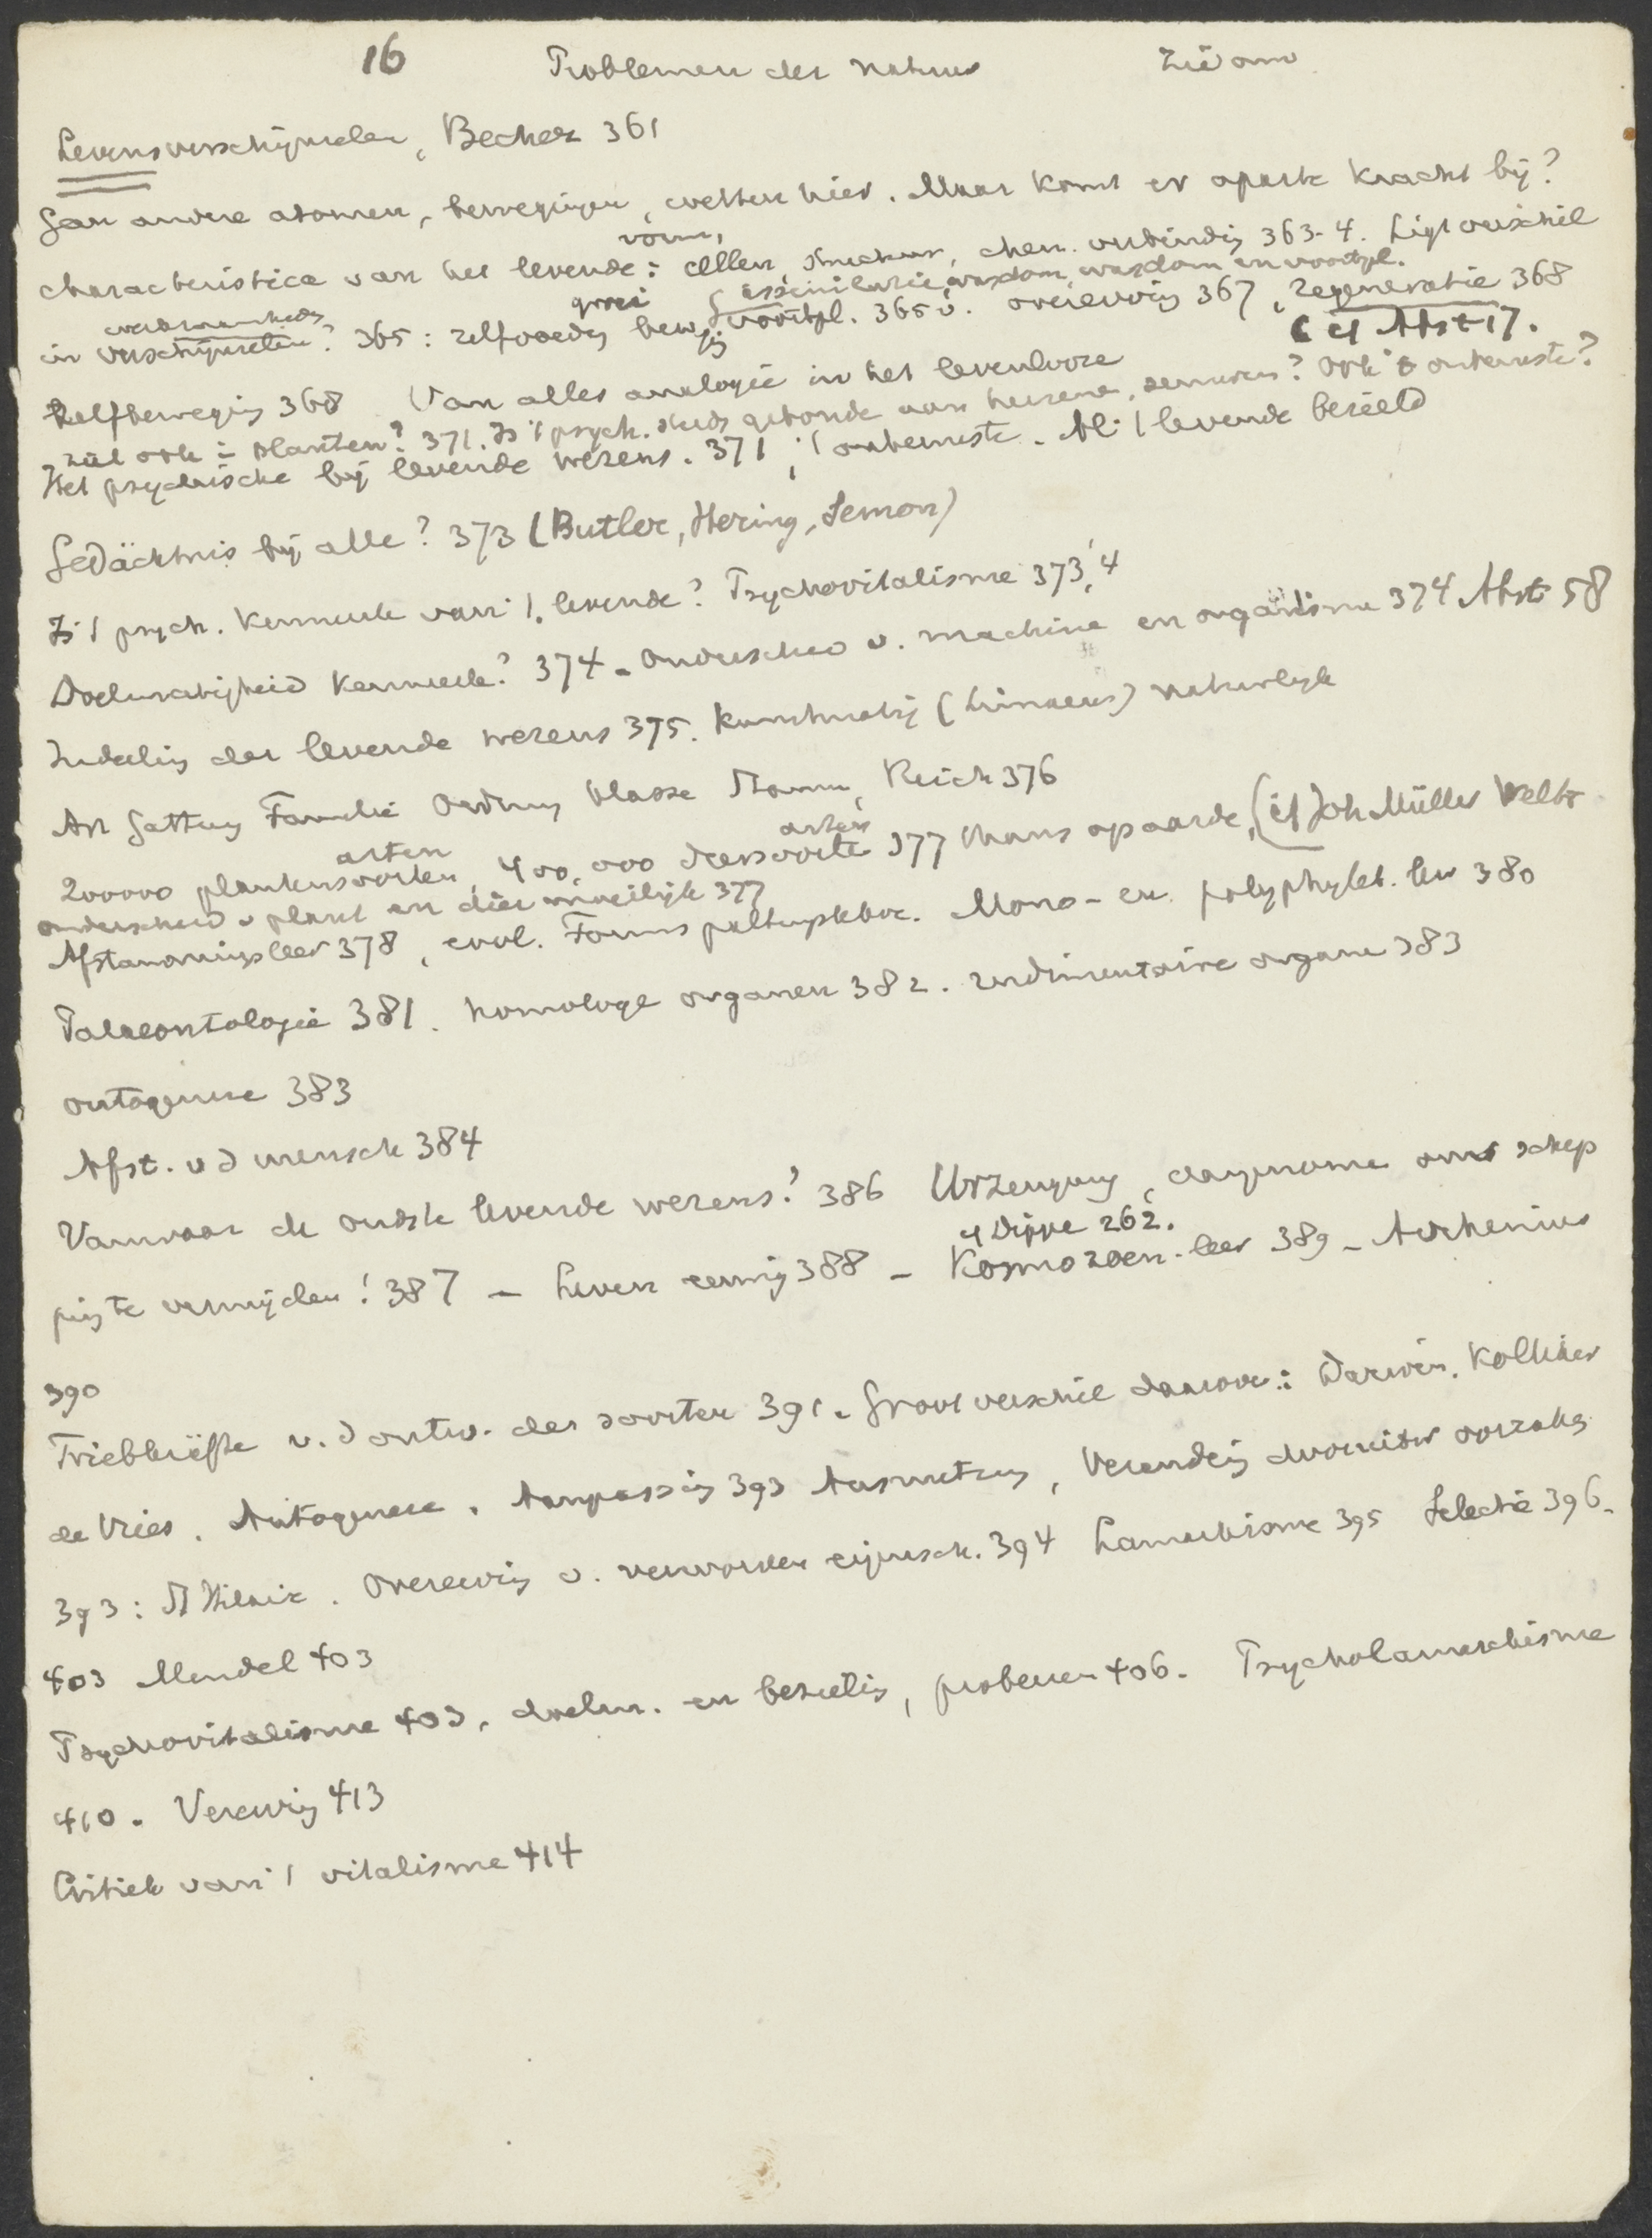 16 Problemen der natuur Zie om
Levensverschijnselen, Becher 361
Geen andere atomen, bewegingen, wetten hier. Maar komt er aparte kracht bij?
vorm,
characteristica van het levende: cellen, structuur, chem. verbindig 363-4. Ligt verschil
groei assimilatie, wasdom, wasdom en voortpl.
in verschijnselen? 365: zelfvoedg beweg voortpl. 365 v. overerving 367, regeneratie 368
cf Afst 17.
Zelfbewegig 368 Van alles analogie in het levenlooze
ziel ook in planten? 371. Is 't psych. steds gebonde aan hersene, zenuwen? Ook 't onbewuste?
Het psychische bij levende wezens. 371, 't onbewuste. Al 't levende bezield
Gedächtnis bij alle? 373 (Butler, Hering, Semon)
Is 't psych. kenmerk van 't levende? Psychovitalisme 373, 4
Doelmatigheid kenmerk? 374 - Onderscheid v. machine en organisme 374 Afst 58
Indelig der levende wezens 375. kunstmatig (Linnaeus) natuurlyk
Art Gattung Familie Ordnung Klasse Stamm, Reich 376
arten arten
200000 plantensoorten, 400.000 diersoorte 377 thans op aarde, (cf Joh Müller Welt
onderscheid v plant en dier moeilijk 377
Afstammingsleer 378, evol. Mono- en polyphylet. leer 380
Palaeontologie 381. homologe organen 382. rudimentaire organe 383
ontogenese 383
Afst. v d mensch 384
Vanwaar de oudste levende wezens? 386 Urzeugung, aangenomen om schep
cf Dippe 262.
pig te vermijden! 387 - Leven eeuwig 388 - Kosmozoen-leer 389 - Arrhenius
390
Triebkräfte v. d ontw. der soorten 391. Groot verschil daarover: Darwin, Kölliker
de Vries. Autogenese. Aanpassig 393 Ausmerzung, Veranderig door uitw oorzakg
393: Hilaire. Overervig v. verworven eigensch. 394 Lamarckisme 395 Selectie 396-
403 Mendel 403
Psychovitalisme 403, doelm. en bezielig, proberen 406. Psycholamarckisme
410. Verervig 413
Critiek van 't vitalisme 414